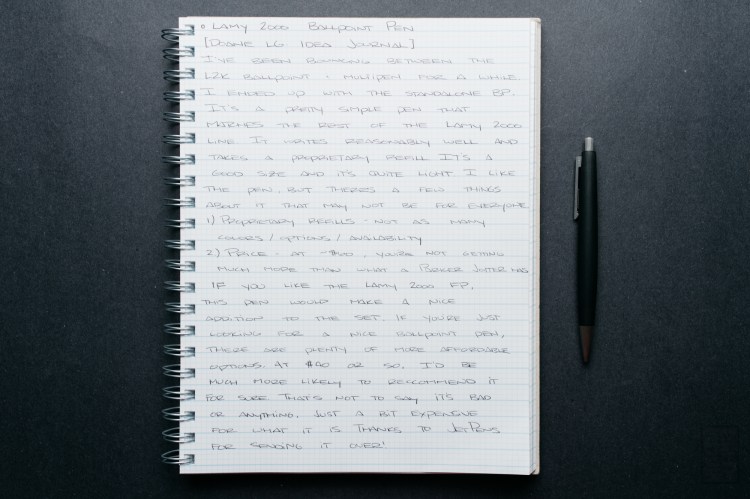 LAMY 2000 BALLPOINT PEN
[DOANE LG IDEA JOURNAL]
I'VE BEEN BOUNCING BETWEEN THE
L2K BALLPOINT + MULTIPEN FOR A WHILE.
I ENDED UP WITH THE STANDALONE BP.
IT'S A PRETTY SIMPLE PEN THAT
MATCHES THE REST OF THE LAMY 2000
LINE. IT WRITES REASONABLY WELL AND
TAKES A PROPRIETARY REFILL. IT'S A
GOOD SIZE AND IT'S QUITE LIGHT. I LIKE
THE PEN, BUT THERE'S A FEW THINGS
ABOUT IT THAT MAY NOT BE FOR EVERYONE
1) PROPRIETARY REFILLS - NOT AS MANY
COLORS / OPTIONS / AVAILABILITY
2) PRICE - AT , YOU'RE NOT GETTING
MUCH MORE THAN WHAT A PARKER JOTTER HAS
IF YOU LIKE THE LAMY 2000 FP,
THIS PEN WOULD MAKE A NICE
ADDITION TO THE SET. IF YOU'RE JUST
LOOKING FOR A NICE BALLPOINT PEN,
THERE ARE PLENTY OF MORE AFFORDABLE
OPTIONS. AT $40 OR SO, I'D BE
MUCH MORE LIKELY TO RECCOMMEND IT
FOR SURE. THAT'S NOT TO SAY IT'S BAD
OR ANYTHING, JUST A BIT EXPENSIVE
FOR WHAT IT IS. THANKS TO JETPENS
FOR SENDING IT OVER!